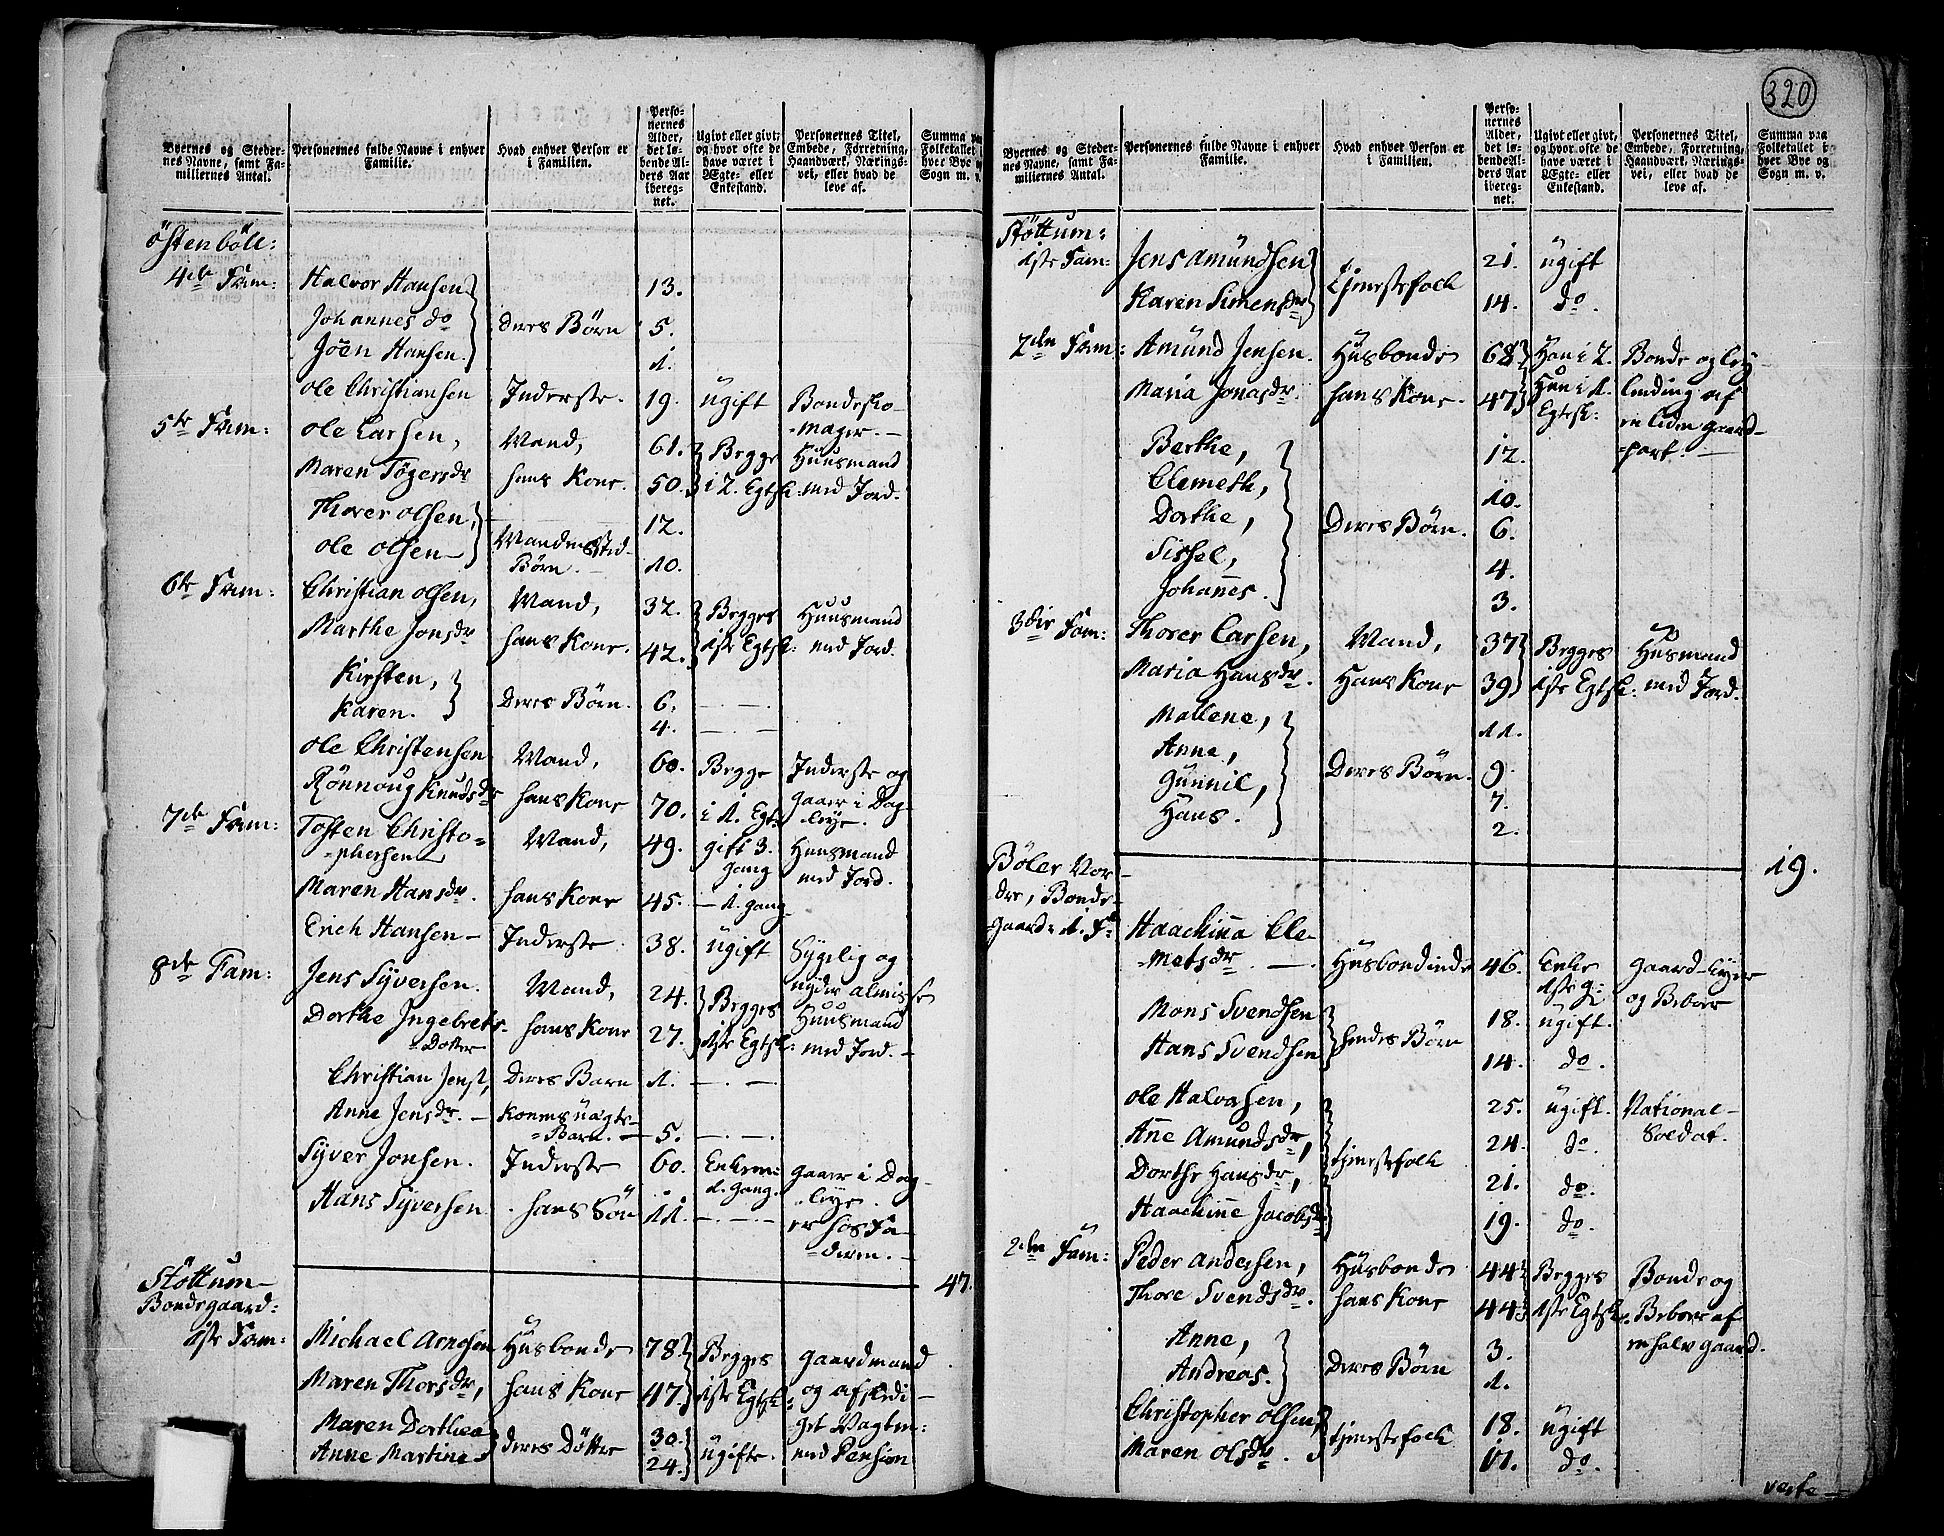 320
Byernes og Steder-
nes Navne, samt Fa-
miliernes Antal.
Personernes fulde Navne i enhver
Familie.
Hvad enhver Person er
i Familien.
Perso-
nernes
Alder,
det lø-
bende Al-
ders Aar
iberegnet-
net.
Ugivt eller givt,
og hvor ofte de
have været i
Ægte- eller
Enkestand.
Personernes Titel,
Embede, Forretning,
Haandværk, Nærings-
vei, eller hvad de
leve af.
Summa paa
Folketallet i
hver Bye og
Sogn m. v.
Östenböll:
4de Fam: Halvor Hansen 13.
Johannes do Deres Börn 5.
Jöen Hansen. 1.
Ole Christiansen Inderste. 19. ugift Bondesko-
mager.
5te Fam: Ole Larsen, Mand, 61. Begge Huusmand
Maren Tögersdr hans Kone. 50. i 2. Egtsk: med Jord.
Thorer Olsen, 12.
Ole Olsen Mandens
Börn. 10.
6te Fam: Christian Olsen, Mand, 32. Begges Huusmand
Marthe Jonsdr hans Kone. 42. 1ste Egtsk: med Jord.
Kirsten, Deres Börn. 6.
Karen. 4.
Ole Christensen Mand, 60. Begge Inderste og
Rönnoug Knudsdr hans Kone 70. i 1. Egt: gaaer i Dag-
leye.
7de Fam: Tosten Christo-
phersen Mand, 49. gift 3. Gang Huusmand
med Jord.
Maren Hansdr. hans Kone 45. 1. Gang
Erich Hansen Inderste 38. ugift Sygelig og
nyder almisse
8de Fam: Jens Syversen. Mand, 24. Begges Huusmand
Dorthe Ingebrets-
Dotter hans Kone 27. 1ste Egtsk: med Jord.
Christian Jens, Deres Barn 1.
Anne Jensdr. Konens uægte
Barn. 5.
Syver Jonsen. Inderste 60. Enkem:
1. Gang. gaaer i Dag-
leye.
Hans Syversen hans Sön 11. er hos Fa-
deren.
47.
Stöttum
Bondegaard:
1ste Fam: Michael Arnesen Husbonde 78. Begges Gaardmand
Maren Thorsdr, hans Kone 47. 1ste Egtsk: og afskedi-
get Vagtm:
Maren Dorthea deres Döttre 30. ugifte. med Pension
Anne Martine 24.
Byernes og Steder-
nes Navne, samt Fa-
miliernes Antal.
Personernes fulde Navne i enhver
Familie.
Hvad enhver Person er
i Familien.
Perso-
nernes
Alder,
det lø-
bende Al-
ders Aar
ibereg-
net.
Ugivt eller givt,
og hvor ofte de
have været i
Ægte- eller
Enkestand.
Personernes Titel,
Embede, Forretning,
Haandværk, Nærings-
vei, eller hvad de
leve af.
Summa paa
Folketallet i
hver Bye og
Sogn m. v.
Stöttum:
1ste Fam: Jens Amundsen Tjenestefolk 21. ugift
Karen Simensdr 14. do.
2den Fam: Amund Jensen. Husbonde 68 Han i 2. Bonde og
Maria Jonasdr. hans Kone. 47 Hun i 1.
Egtesk: af
en liden Gaard-
part.
Berthe, 12.
Clemeth, 10.
Dorthe, Deres Börn. 6.
Sissel, 4.
Johannes. 3.
3die Fam: Thorer Larsen, Mand, 37 Begges Husmand
Maria Hansdr. Hans Kone 39 1ste Egtsk: med Jord.
Mallene, 11.
Anne, Deres Börn. 9.
Gunnil, 7.
Hans. 2.
19.
Böler Nor-
dre, Bonde-
gaard: 1. F: Haachinna Cle-
metsdr. Husbondinde 46. Enke
1ste G: Gaard-Eyer
og Beboer
Mons Svendsen hendes Börn 18. ugift.
Hans Svendsen 14. do.
Ole Halvorsen, 25. ugift. National-
Soldat.
Ane Amundsdr, tjenestefolk 24. do.
Dorthe Hansdr, 21. do.
Haachinne Jacobsdr 19. do.
2den Fam: Peder Andersen, Husbonde 44 Begges Bonde og
Thore Svendsdr. hans Kone 44 1ste Egtsk. Beboer af
en halv gaard.
Anne, Deres Börn 3.
Andreas. 1.
Christopher Olsen, tjenestefolk 18. ugift
Maren Olsdr. 11. do.